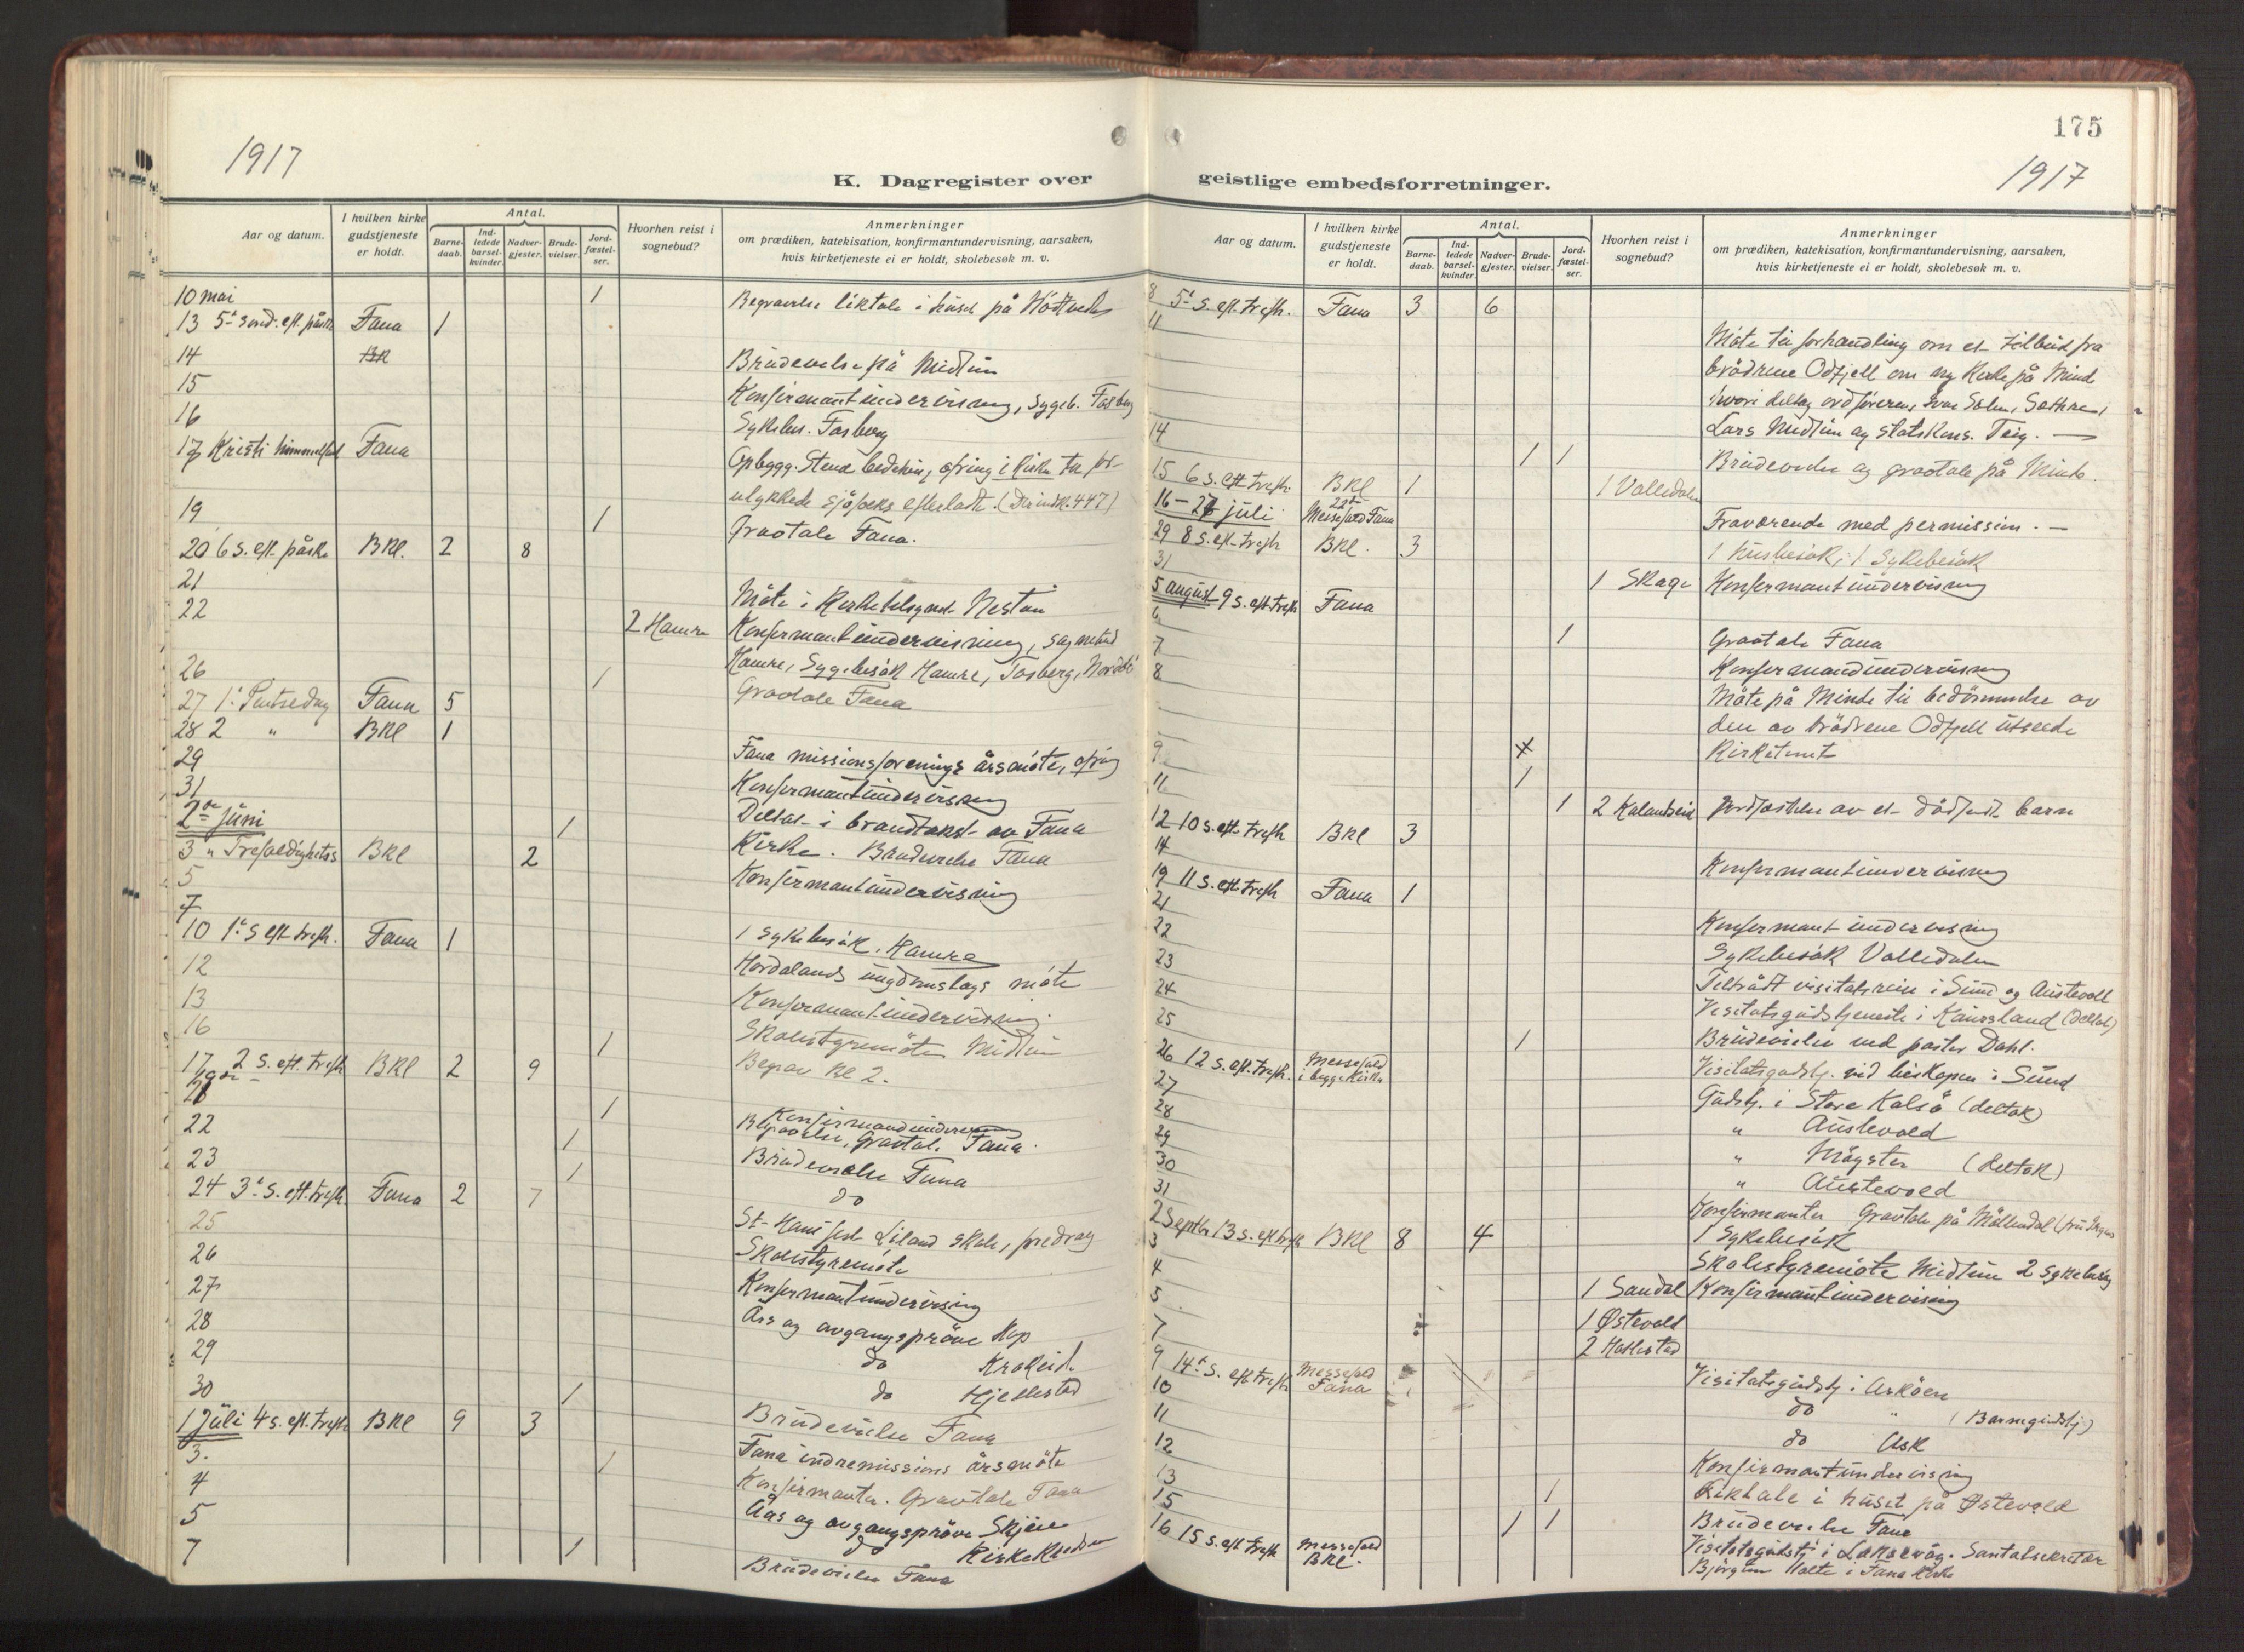 1917
K. Dagregister over
Aar og datum.
I hvilken kirke gudstjeneste er holdt.
Antal.
Barne-daab.
Ind-ledede barsel-kvinder.
Nadver-gjester.
Brude-vielser.
Jord-fæstel-ser.
Hvorhen reist i sognebud?
Anmerkninger
om prædiken, katekisation, konfirmantundervisning, aarsaken,
hvis kirketjeneste ei er holdt, skolebesøk m. v.
10 mai 1 Begravelse liktale i huset på
13 5te sønd. eft. påske Fana 1
14 Brudevielse på Midtun
15 Konfirmantundervisning, sygeb.
16 Sykebes.
17 Kristi himmelfart Fana
19 1 Gravtale Fana.
20 6 s. eft. påske BKl. 2 8
21 Møte i
22 2 Hamre Konfirmantundervisning,
Hamre, Sygebesøk Hamre,
26 1 Gravtale Fana
27 1. Pintsedag Fana 5
28 2 " BKl 1
29 Fana missionsforenings årsmøte,
31 Konfirmantundervisning
2 juni 1 Deltat i av Fana
Kirke. Brudevielse Fana
3 " Trefoldighetss BKl 2
5 Konfirmantundervisning
7 1 sykebesøk. Hamre
10 1. s eft. trefh. Fana 1
Hordalands ungdomslags møte
12 Konfirmantundervisning
13 Skolestyremøte Midtun
16 1 Begrav kl 2.
17 2 s. eft. trefh BKl 2 9
Konfirmandundervisning
1 Begravelse, Gravtale Fana.
22 1 Brudevielse Fana
23 1 do
24 3. s. eft. trefh Fana 2 7
25 St. Hansfest Liland skole, foredrag
26 Skolestyremøte
27 Konfirmantundervisning
28 Års og avgangsprøve Hop
29 do Krokeid
30 1 do Hjellestad
Brudevielse Fana
1 Juli 4 s. eft. trefh BKl 9 3
3. 1 Fana indremissions årsmøte
4 Konfirmanter. Gravtale Fana
5 Års og avgangsprøve
do
7 1 Brudevielse Fana
175
1917
geistlige embedsforretninger.
Aar og datum.
I hvilken kirke gudstjeneste er holdt.
Antal.
Barne-daab.
Ind-ledede barsel-kvinder.
Nadver-gjester.
Brude-vielser.
Jord-fæstel-ser.
Hvorhen reist i sognebud?
Anmerkninger
om prædiken, katekisation, konfirmantundervisning, aarsaken,
hvis kirketjeneste ei er holdt, skolebesøk m. v.
8 5te s. eft. trefh. Fana 3 6
11 Møte til forhandling om et tilbud fra
brødrene Odfjell om ny kirke på Minde
hvori deltog ordføreren,
Lars Midtun og
14 1 1 Brudevielse og gravtale på Minde.
15 6 s. eft trefh. BKl 1 1 Valledalen
16 – 27 juli Messefald Fana Fraværende med permission. —
29 8 s. eft. trefh BKl. 3 1 husbesøk; 1 Sykebesøk
31 1 Skage Konfirmantundervisning
5 august 9 s. eft. trefh Fana
6 1 Gravtale Fana
7 Konfirmandundervisning
8 Møte på Minde til bedømmelse av
den av brødrene Odfjell utseede
Kirketomt
9
11 1
1 2 Kalandseid Jordfæstelse av et dødfødt barn
12 10 s. eft. trefh BKl 3
14 Konfirmantundervisning
19 11 s. eft trefh Fana 1
21 Konfirmantundervisning
22 Sykebesøk Valledalen
23 Tiltrådt visitatsreise i Sund og Austevoll
24 Visitatsgudstjeneste i (deltok)
25 1 Brudevielse ved pastor Dahl.
26 12 s. eft. trefh. Messefald i begge kirker Visitatsgudstj. ved biskopen i Sund
27 Gudstj. i Store Kalsø (deltok)
28 " Austevold
29 " Møgster (deltok)
30 " Austevold
31 Konfirmanter Gravtale på Møllendal
2 Septbr 13 s. eft trefh BKl 8 4 1 Sykebesøk
3 Skolestyremøte Midtun 2 sykebesøg
4 1 Sandal Konfirmantundervisning
5 1 Østevold
7 2 Hatlestad
9 14. s. eft trefh Messefald Fana Visitatsgudstj. i Askøen
10 do " (Barnegudstj)
11 do Ask
12 Konfirmantundervisning
13 1 Liktale i huset på Østevold
15 1 1 Brudevielse Fana
16 15 s. eft trefh Messefald BKl. Visitatsgudstj i Laksevåg. Santalsekretær
Holte i Fana kirke